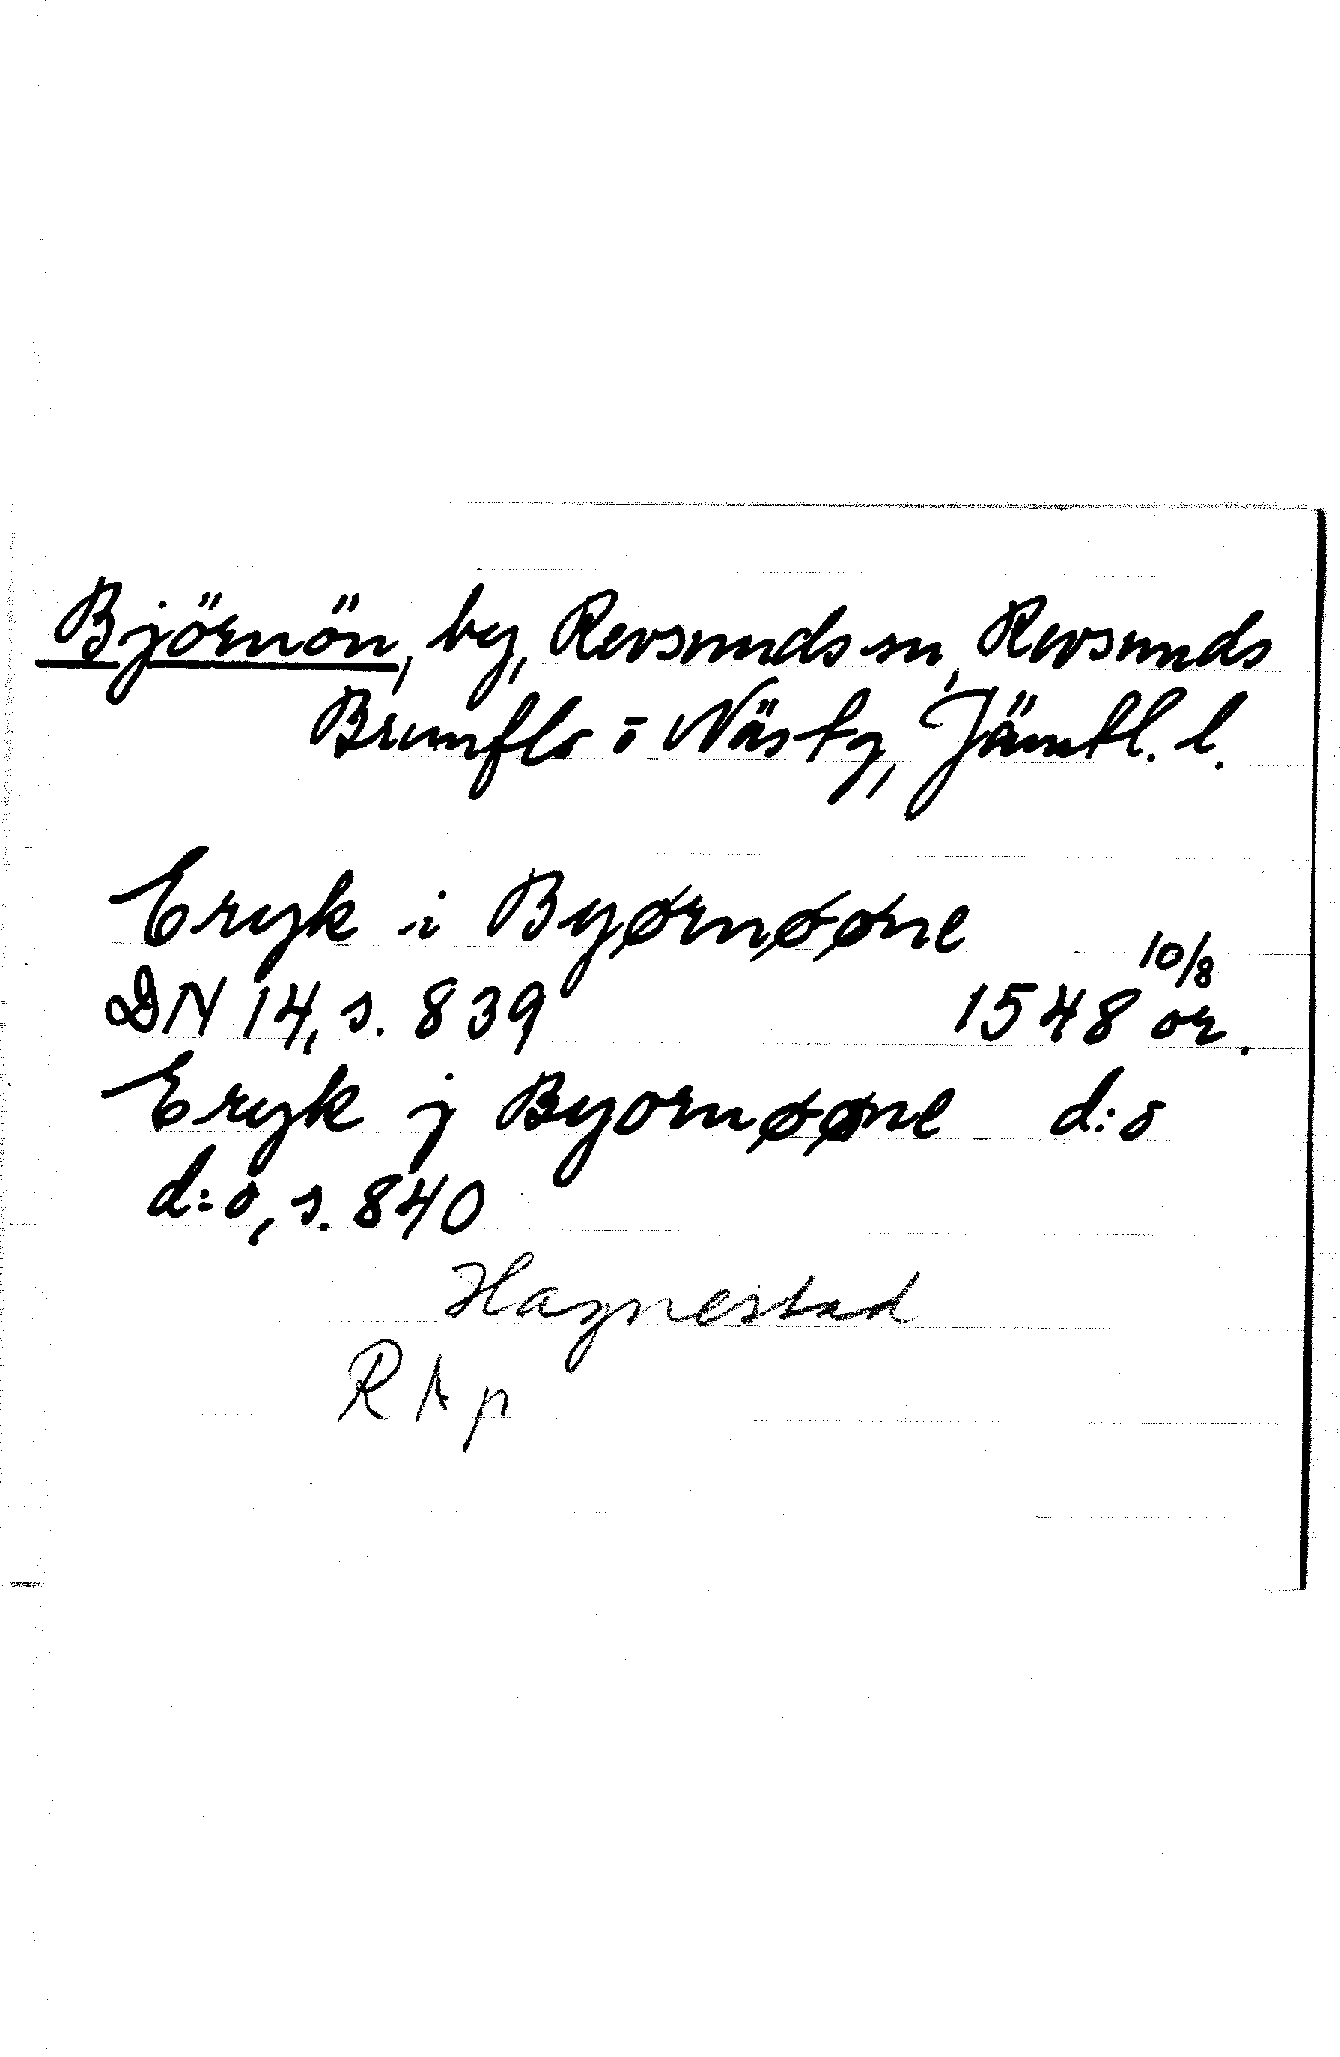 Björnön, by, Revsunds sn, Revsunds
Brunflo o Näs tg, Jämtl. l.
Eryk i Byørnøøne
DN 14, s. 839 1548 10/8 or.
Eryk j Byornøøne d:o
d:o, s. 840
Hagnestad
RAp